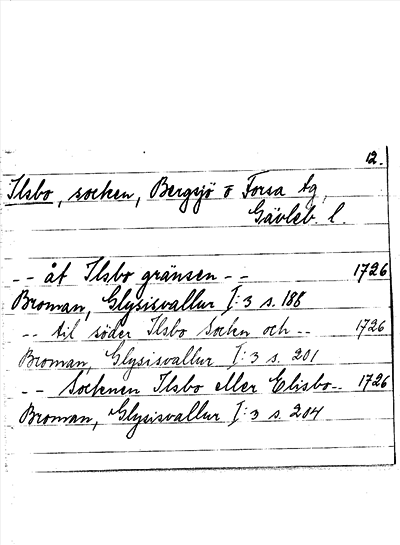 12.
Ilsbo, socken, Bergsjö o Forsa tg,
Gävleb. l.
-- åt Ilsbo gränsen -- 1726
Broman, Glysisvallur I:3 s. 188
-- til söder Ilsbo Socken och -- 1726
Broman, Glysisvallur I:3 s. 201
-- Socknen Ilsbo eller Elisbo -- 1726
Broman, Glysisvallur I:3 s. 204